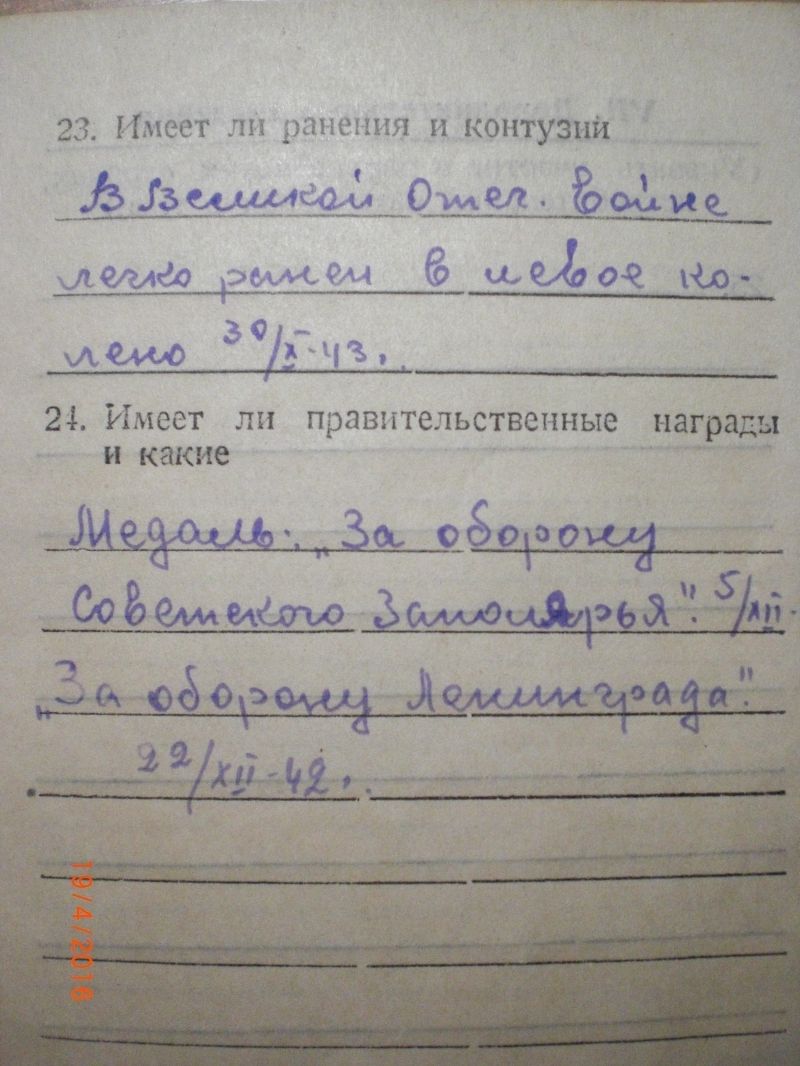 23. Имеет ли ранения и контузии
В Великой Отеч. войне
легко ранен в левое ко-
лено 30/X-43.
24. Имеет ли правительственные награды
и какие
Медаль: „За оборону
Советского Заполярья". 5/XII-
„За оборону Ленинграда".
22/XII-42.
19/4/2016